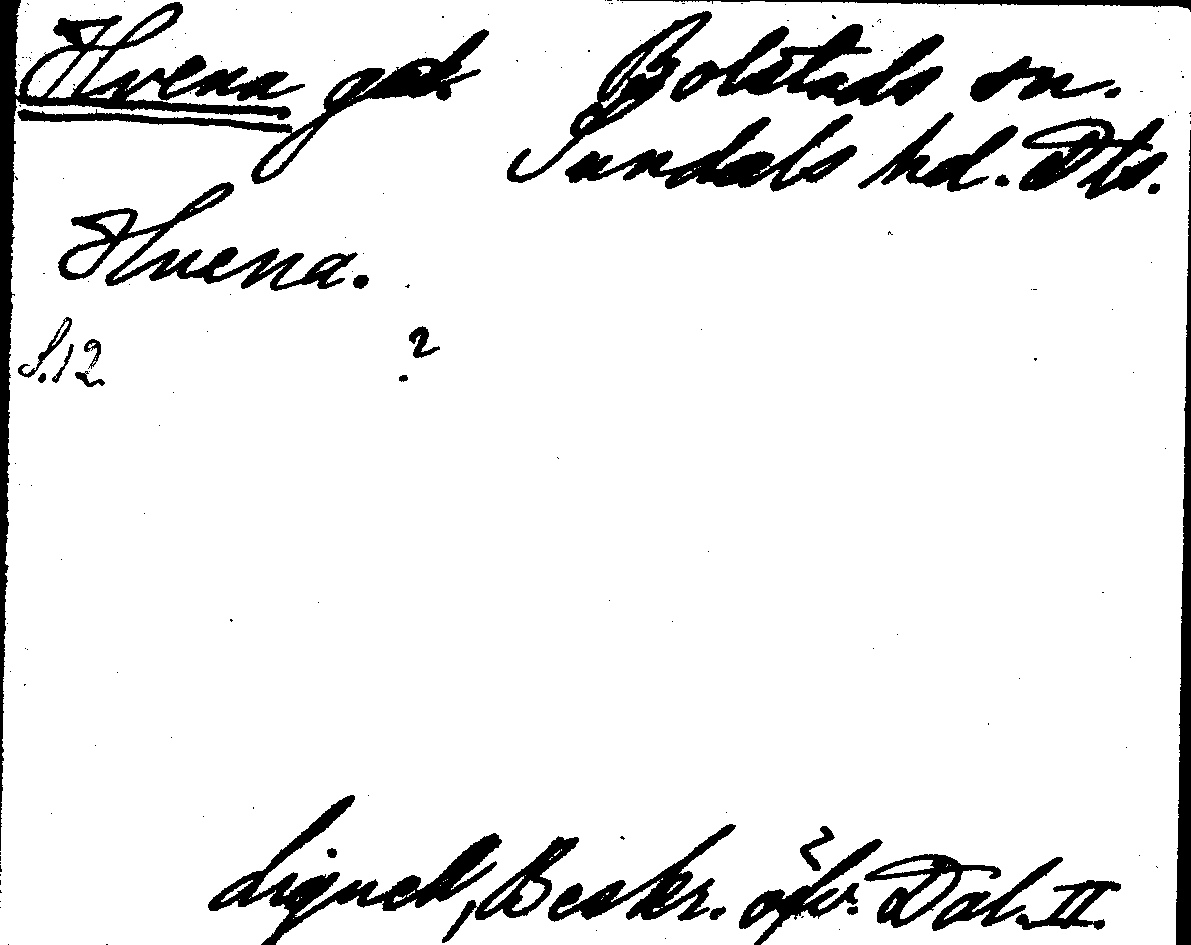 Hvena gd. Bolstads sn.
Sundals hd. Dls.
Hvena.
S.12. ?
Lignell, Beskr. öfv. Dal. II.